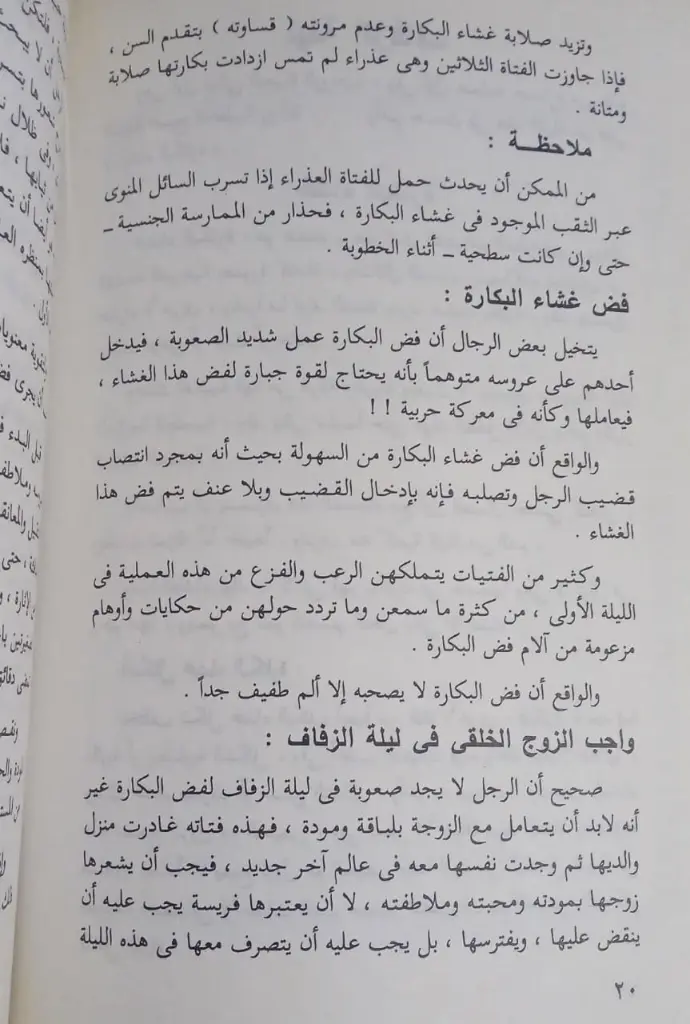 وتزيد صلابة غشاء البكارة وعدم مرونته ( قساوته ) بتقدم السن ،
فإذا جاوزت الفتاة الثلاثين وهى عذراء لم تمس ازدادت بكارتها صلابة
ومتانة .
ملاحظــة :
من الممكن أن يحدث حمل للفتاة العذراء إذا تسرب السائل المنوى
عبر الثقب الموجود فى غشاء البكارة ، فحذار من الممارسة الجنسية ــ
حتى وإن كانت سطحية ــ أثناء الخطوبة .
فض غشاء البكارة :
يتخيل بعض الرجال أن فض البكارة عمل شديد الصعوبة ، فيدخل
أحدهم على عروسه متوهماً بأنه يحتاج لقوة جبارة لفض هذا الغشاء ،
فيعاملها وكأنه فى معركة حربية ! !
والواقع أن فض غشاء البكارة من السهولة بحيث أنه بمجرد انتصاب
قضيب الرجل وتصلبه فإنه بإدخال القضيب وبلا عنف يتم فض هذا
الغشاء .
وكثير من الفتيات يتملكهن الرعب والفزع من هذه العملية فى
الليلة الأولى ، من كثرة ما سمعن وما تردد حولهن من حكايات وأوهام
مزعومة من آلام فض البكارة .
والواقع أن فض البكارة لا يصحبه إلا ألم طفيف جداً .
واجب الزوج الخلقى فى ليلة الزفاف :
صحيح أن الرجل لا يجد صعوبة فى ليلة الزفاف لفض البكارة غير
أنه لابد أن يتعامل مع الزوجة بلباقة ومودة ، فهذه فتاته غادرت منزل
والديها ثم وجدت نفسها معه فى عالم آخر جديد ، فيجب أن يشعرها
زوجها بمودته ومحبته وملاطفته ، لا أن يعتبرها فريسة يجب عليه أن
ينقض عليها ، ويفترسها ، بل يجب عليه أن يتصرف معها فى هذه الليلة
٢٠